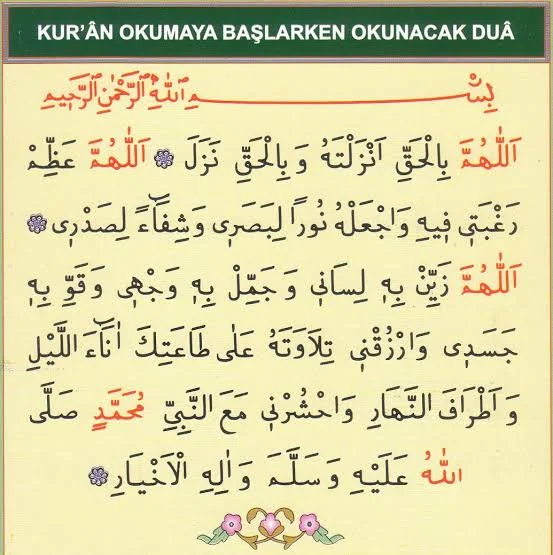 KUR’ÂN OKUMAYA BAŞLARKEN OKUNACAK DUÂ
بِسْمِ اللّٰهِ الرَّحْمٰنِ الرَّحِيمِ
اَللّٰهُمَّ بِالْحَقِّ اَنْزَلْتَهُ وَبِالْحَقِّ نَزَلَ ۞ اَللّٰهُمَّ عَظِّمْ
رَغْبَتٖى فٖيهِ وَاجْعَلْهُ نُورًا لِبَصَرٖى وَشِفَٓاءً لِصَدْرٖى ۞
اَللّٰهُمَّ زَيِّنْ بِهٖ لِسَانٖى وَجَمِّلْ بِهٖ وَجْهٖى وَقَوِّ بِهٖ
جَسَدٖى وَارْزُقْنٖى تِلَاوَتَهُ عَلٰى طَاعَتِكَ اٰنَٓاءَ اللَّيْلِ
وَاَطْرَافَ النَّهَارِ وَاحْشُرْنٖى مَعَ النَّبِيِّ مُحَمَّدٍ صَلَّى
اللّٰهُ عَلَيْهِ وَسَلَّمَ وَاٰلِهِ الْاَخْيَارِ ۞